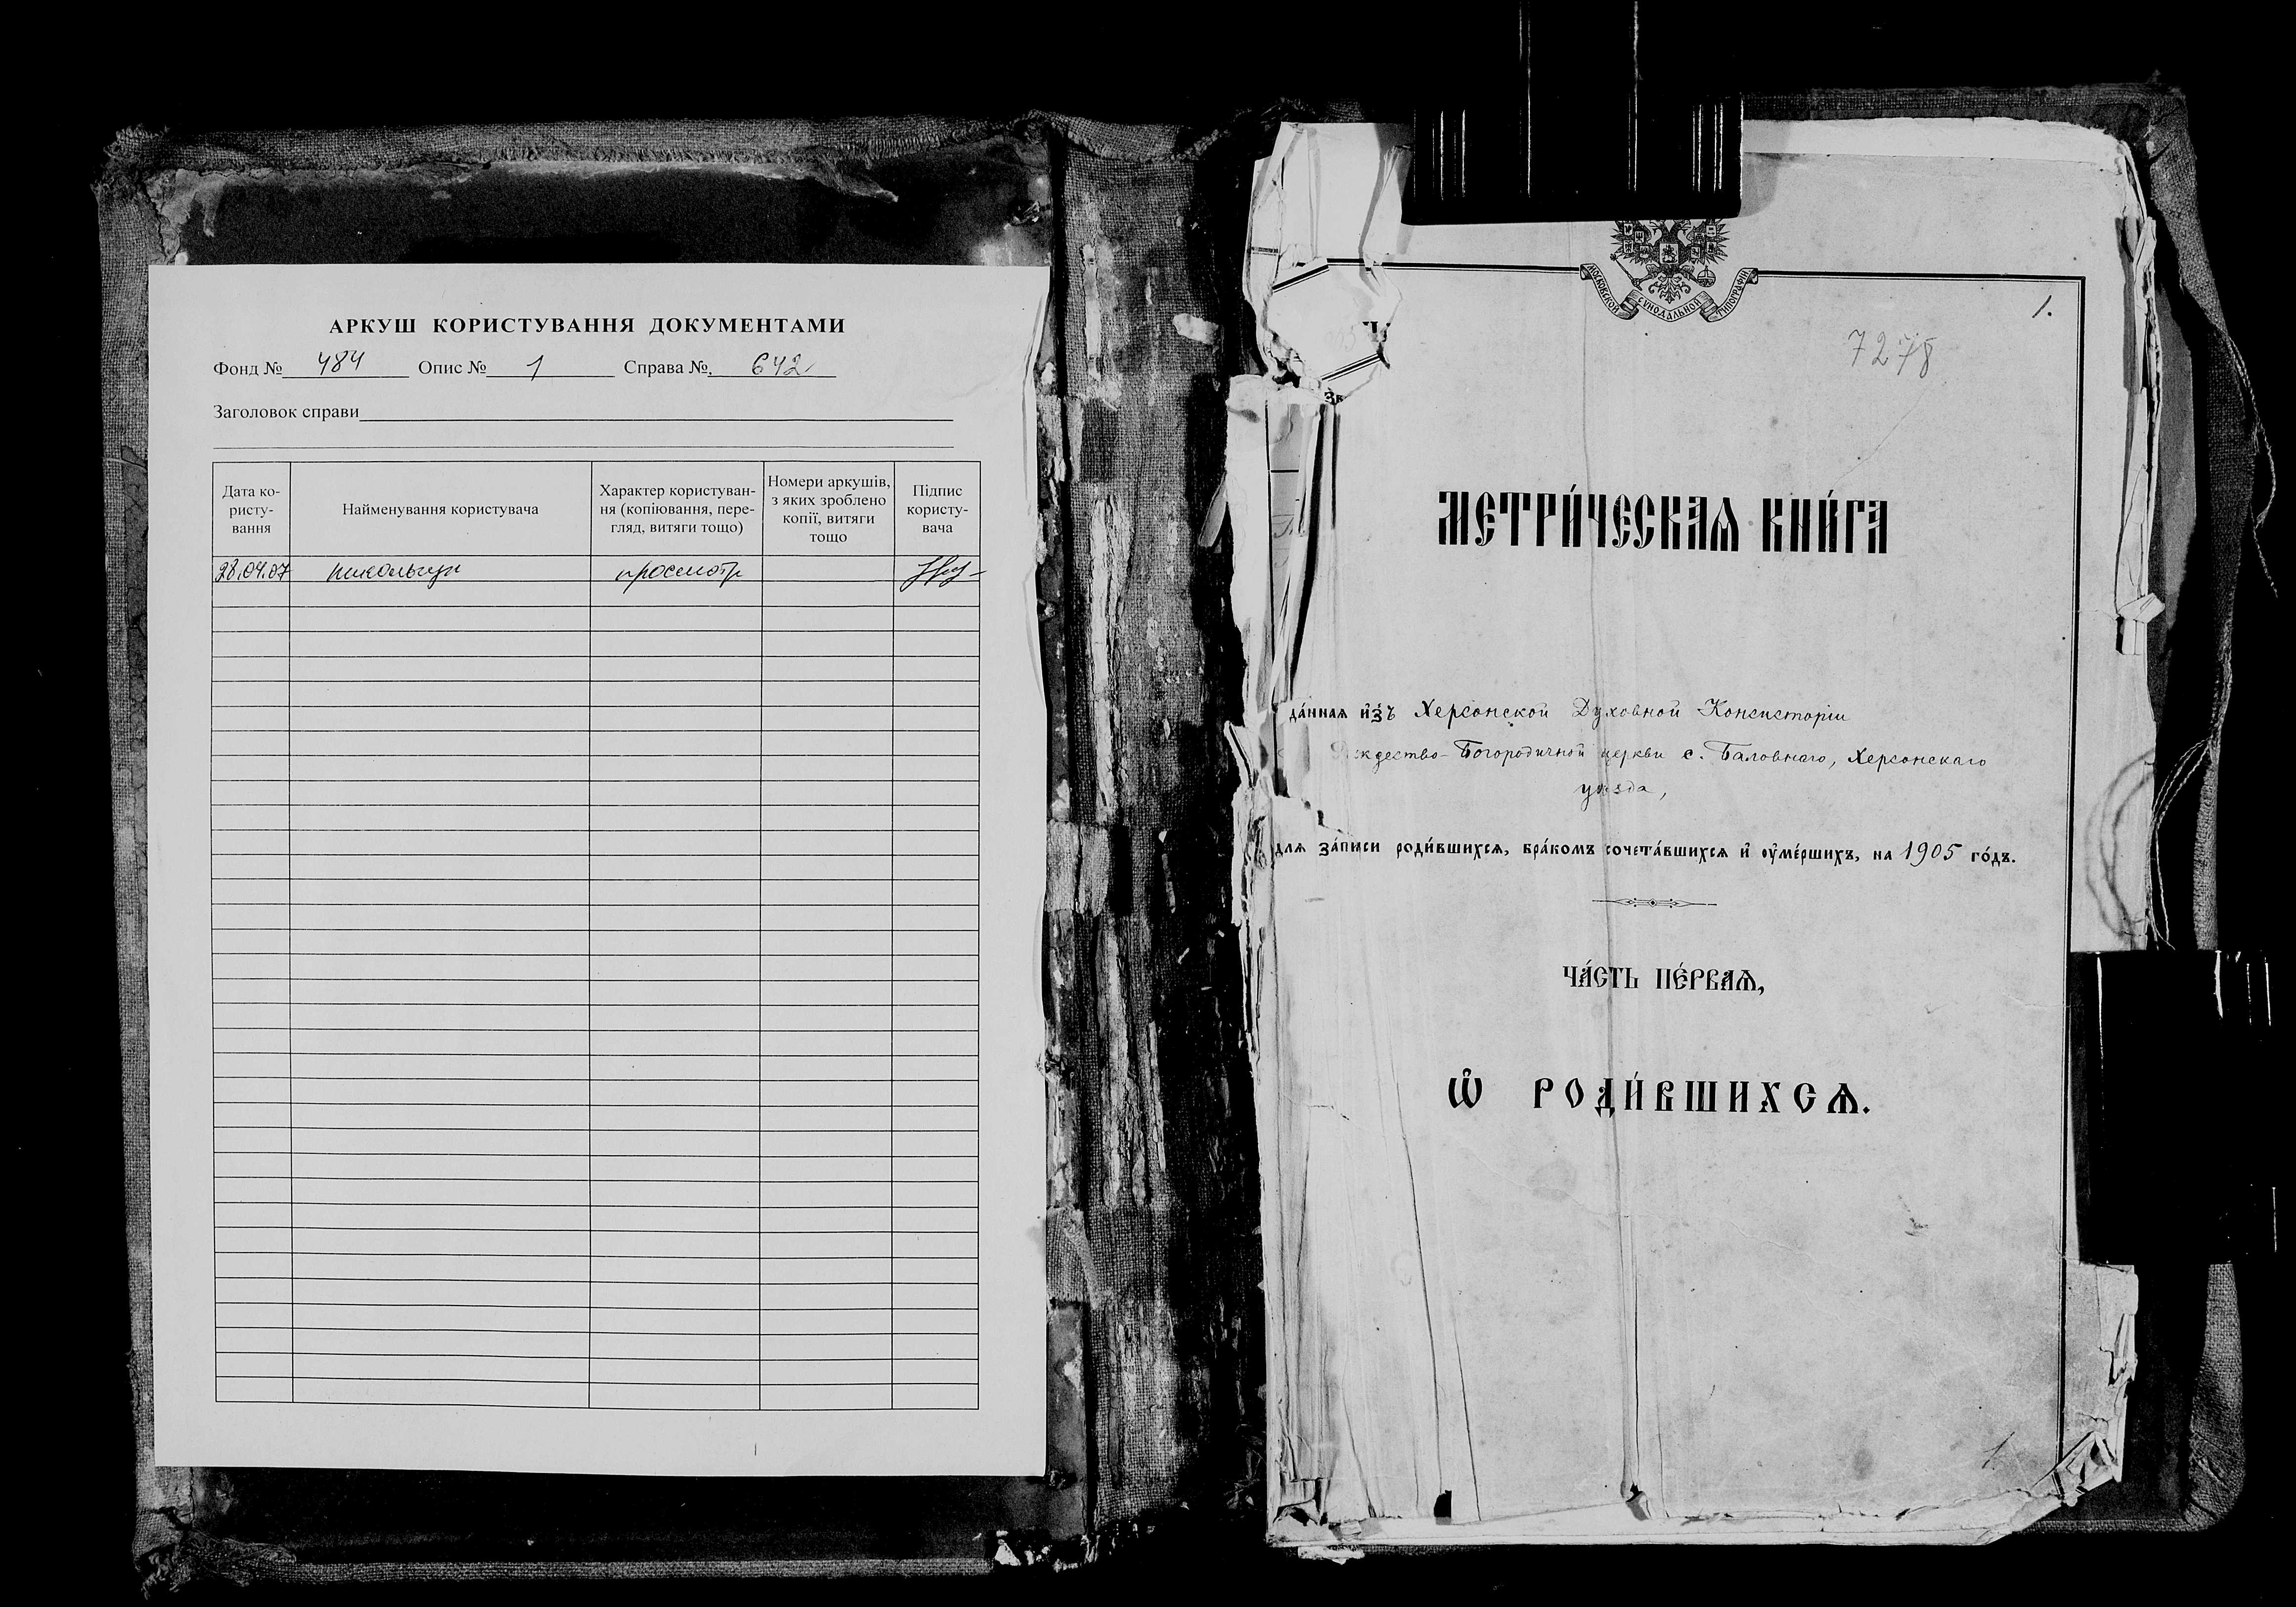 АРКУШ КОРИСТУВАННЯ ДОКУМЕНТАМИ
Фонд № 484 Опис № 1 Справа № 642
Заголовок справи
Дата ко-
ристу-
вання
Найменування користувача
Характер користуван-
ня (копіювання, пере-
гляд, витяги тощо)
Номери аркушів,
з яких зроблено
копії, витяги
тощо
Підпис
користу-
вача
28.04.07 просмотр
МОСКОВСКОЙ СѴНОДАЛЬНОЙ ТИПОГРАФІИ
1.
7278
МЕТРИ́ЧЕСКАѦ КНИ́ГА
да́нная и҆з̾ Херсонской Духовной Консисторіи
ждество-Богородичной церкви с. Баловнаго, Херсонскаго
уѣзда,
для за́писи роди́вшихся, бра́комъ сочета́вшихся и҆ оу҆ме́ршихъ, на 1905 го́дъ.
ЧА́СТЬ ПЕ́РВАѦ,
Ѡ҆ РОДИ́ВШИХСѦ.
1.